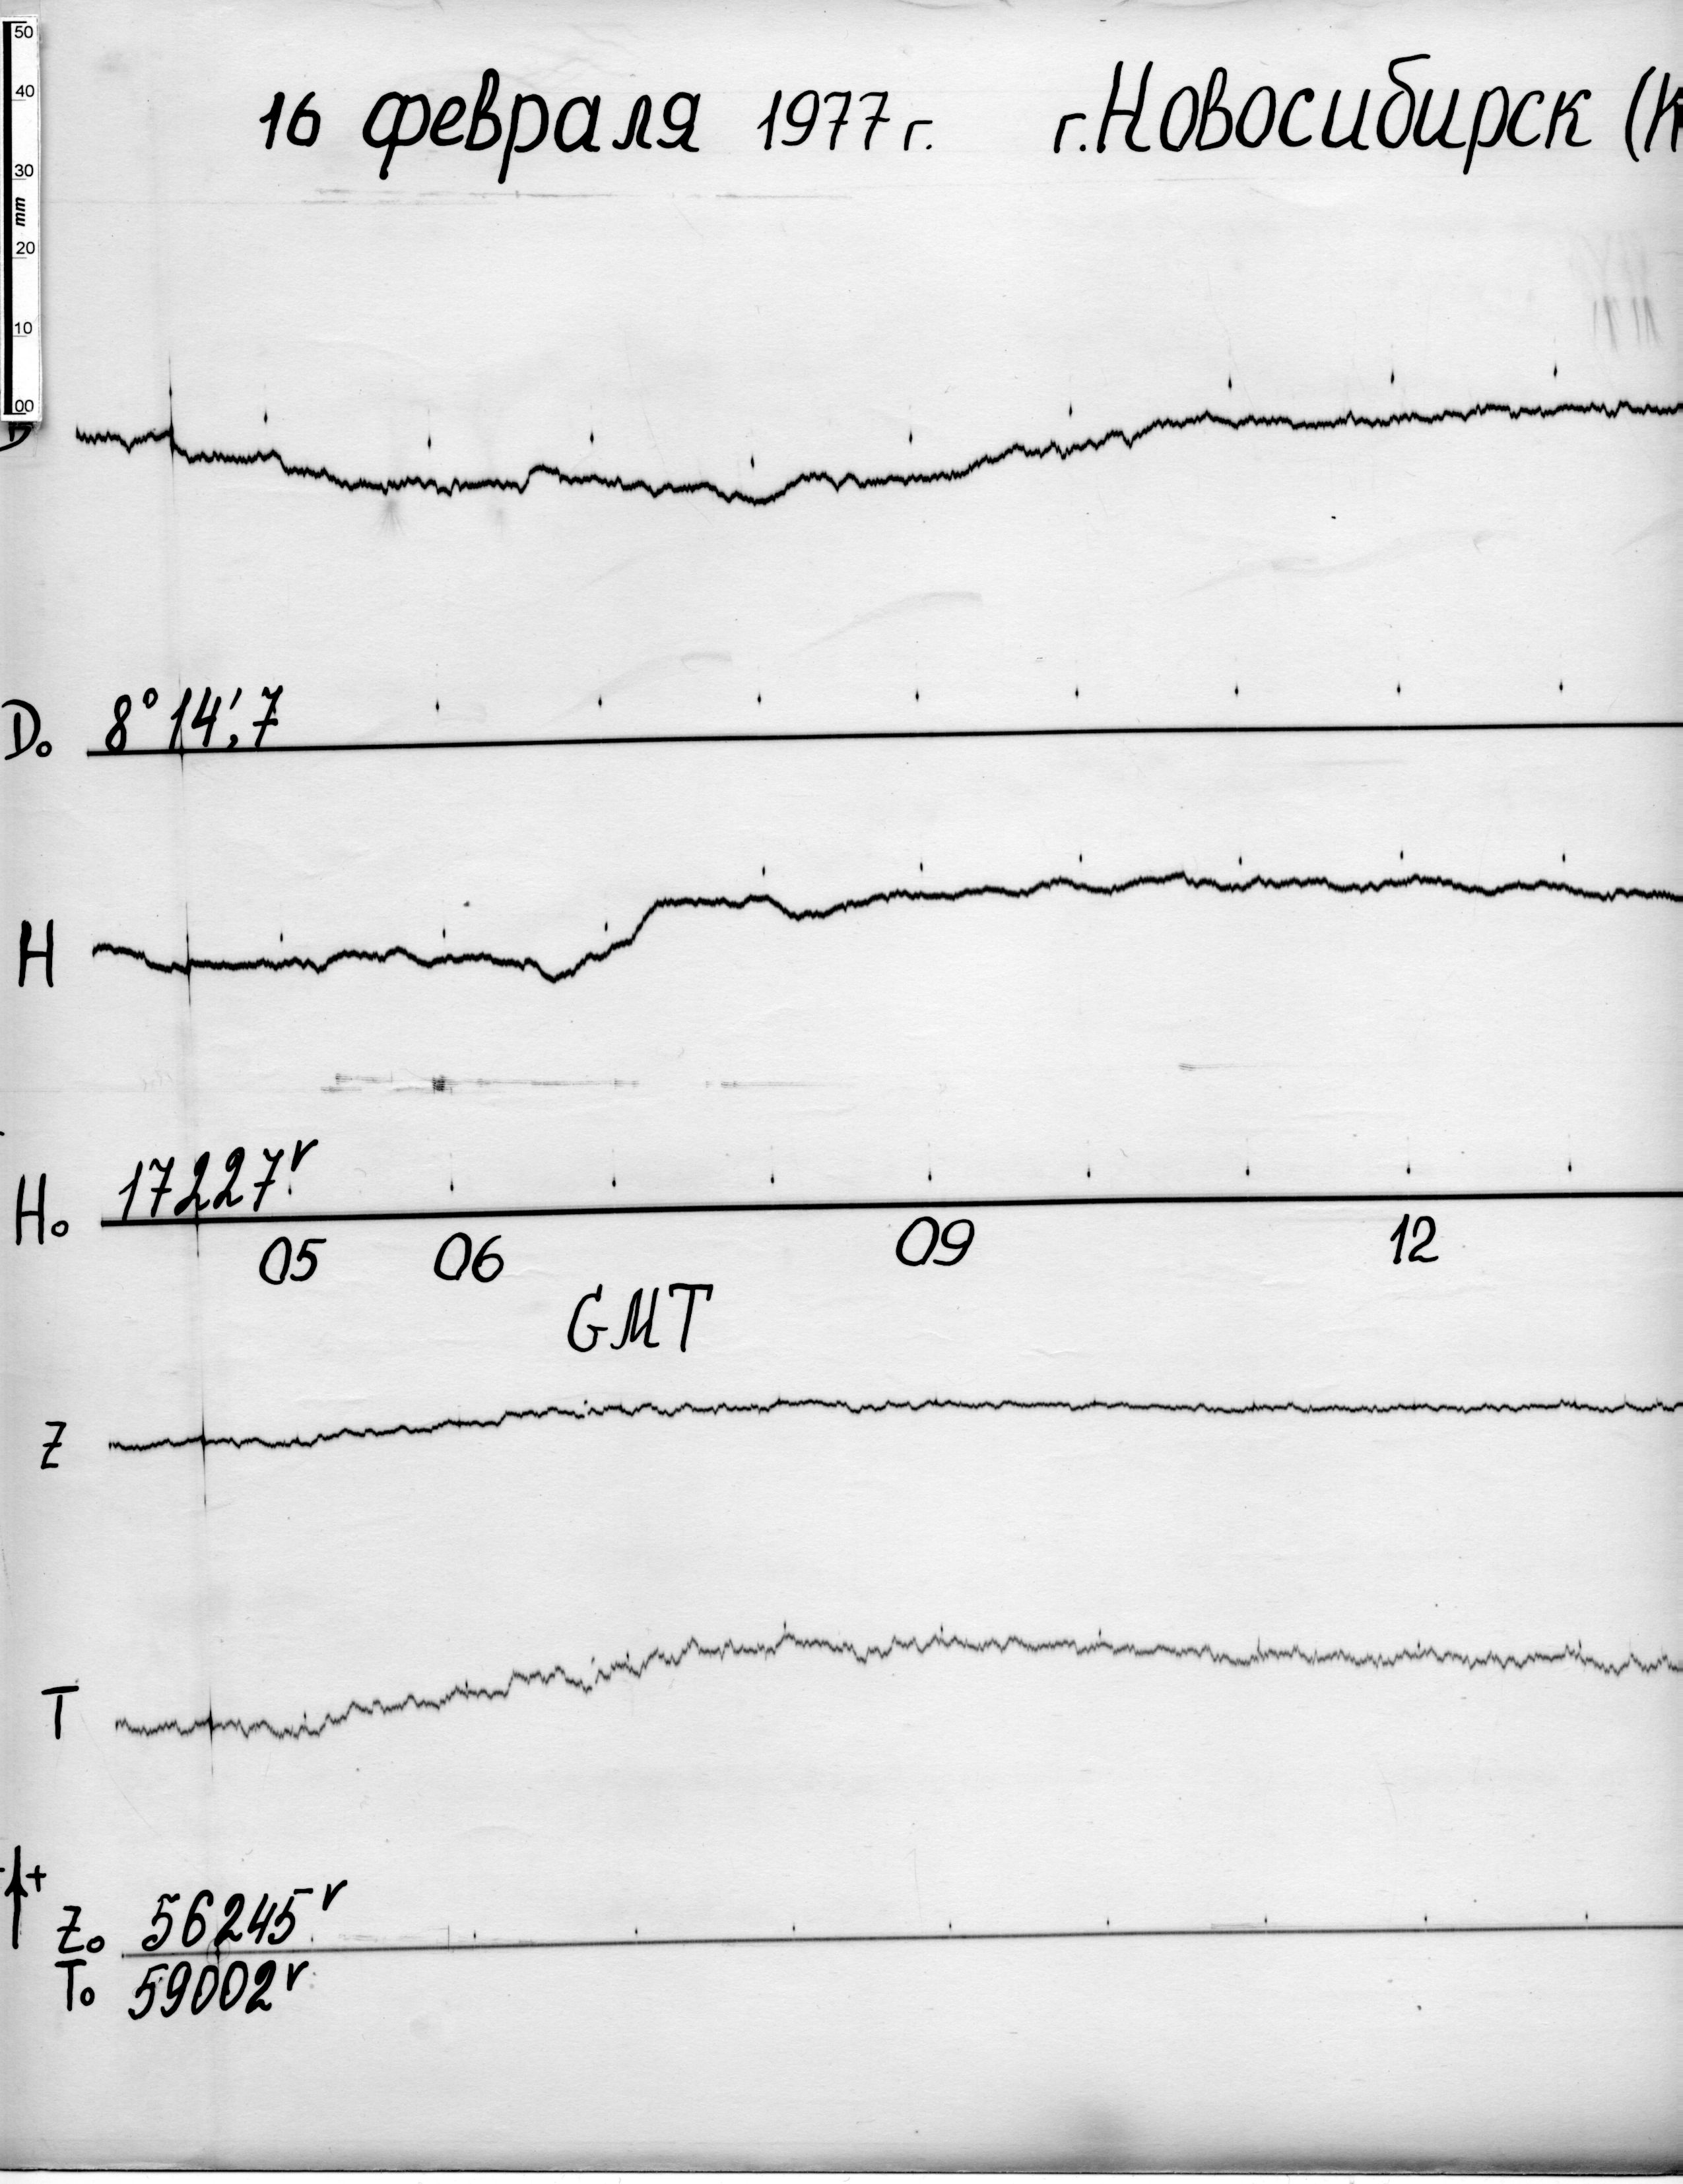 50
40
30
mm
20
10
00
16 февраля 1977 г. г. Новосибирск (К
D
D₀ 8° 14',7
H
H₀ 17227γ
05 06 09 12
GMT
Z
T
+
Z₀ 56245γ
T₀ 59002γ